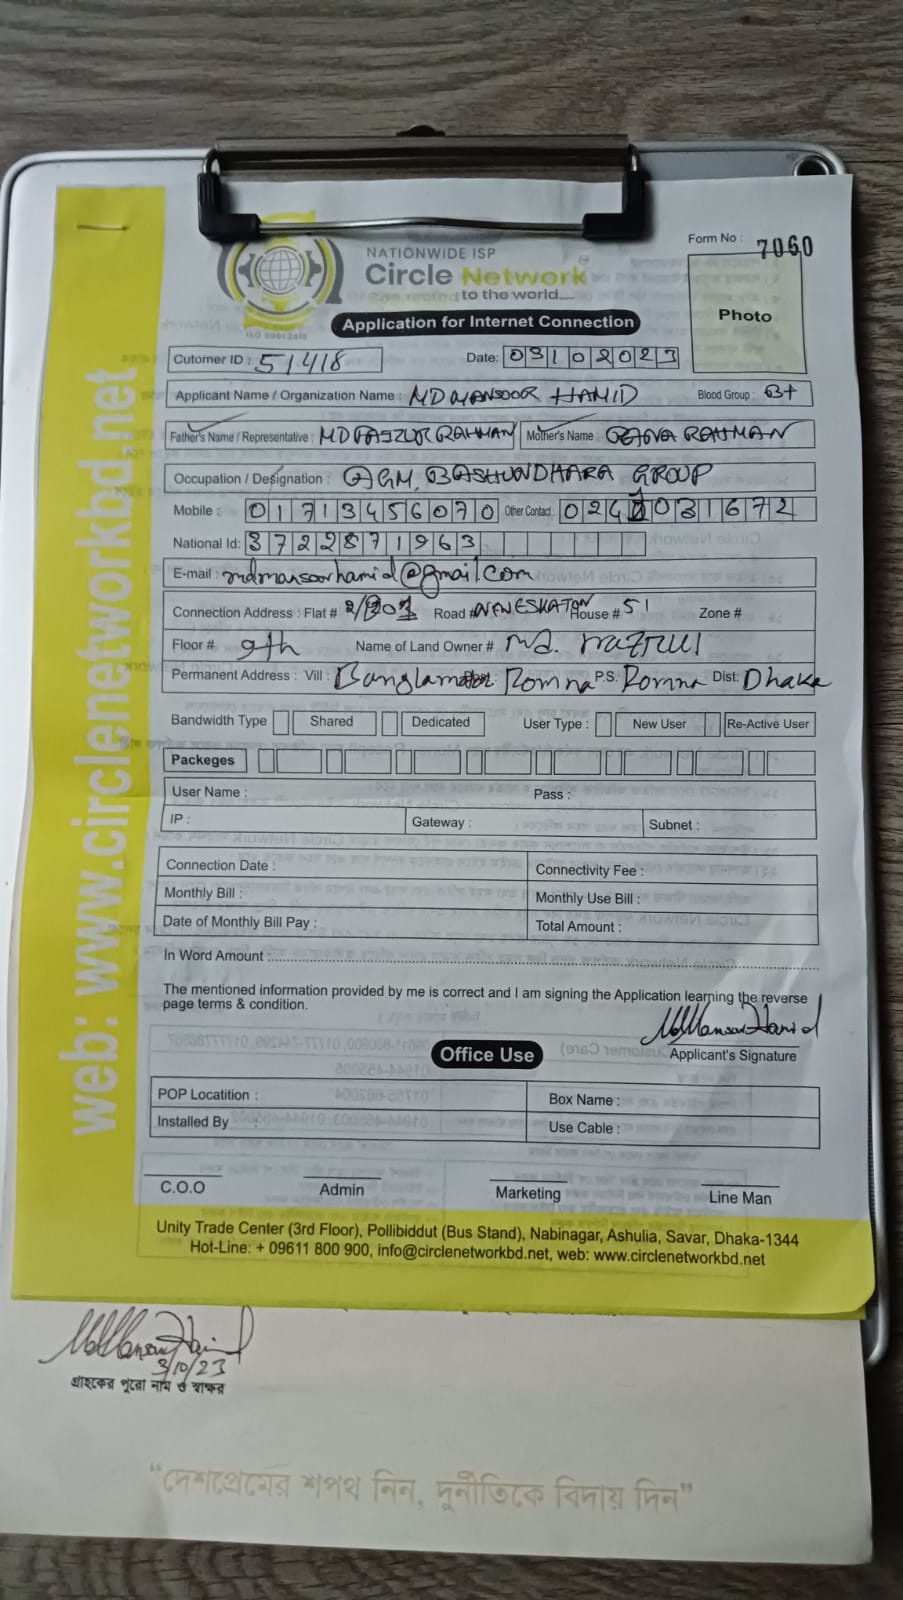 Form No : 7060
NATIONWIDE ISP
Circle Network
Connected to the world.....
ISO 9001:2015
Photo
Application for Internet Connection
Cutomer ID : 51418 Date: 03102023
Applicant Name / Organization Name : MD MANSOOR HAMID Blood Group : B+
Father's Name / Representative : MD FAIZUR RAHMAN Mother's Name : RAHMAN
Occupation / Designation : AGM, BASHUNDHARA GROUP
Mobile : 01713456070 Other Contact : 0241031672
National Id: 3722871963
E-mail : mdmansoorhamid@gmail.com
Connection Address : Flat # Road # NEWESKATON House # 51 Zone #
Floor # 9th Name of Land Owner # Md. Nazrul
Permanent Address : Vill : Banglamotor Romna P.S. Romna Dist: Dhaka
Bandwidth Type Shared Dedicated User Type : New User Re-Active User
Packeges
User Name : Pass :
IP : Gateway : Subnet :
Connection Date : Connectivity Fee :
Monthly Bill : Monthly Use Bill :
Date of Monthly Bill Pay : Total Amount :
In Word Amount :
The mentioned information provided by me is correct and I am signing the Application learning the reverse
page terms & condition.
Md Mansoor Hamid
Applicant's Signature
Office Use
POP Locatition : Box Name :
Installed By : Use Cable :
C.O.O Admin Marketing Line Man
Unity Trade Center (3rd Floor), Pollibiddut (Bus Stand), Nabinagar, Ashulia, Savar, Dhaka-1344
Hot-Line: + 09611 800 900, info@circlenetworkbd.net, web: www.circlenetworkbd.net
web: www.circlenetworkbd.net
Md Mansoor Hamid
3/10/23
গ্রাহকের পুরো নাম ও স্বাক্ষর
“দেশপ্রেমের শপথ নিন, দুর্নীতিকে বিদায় দিন”